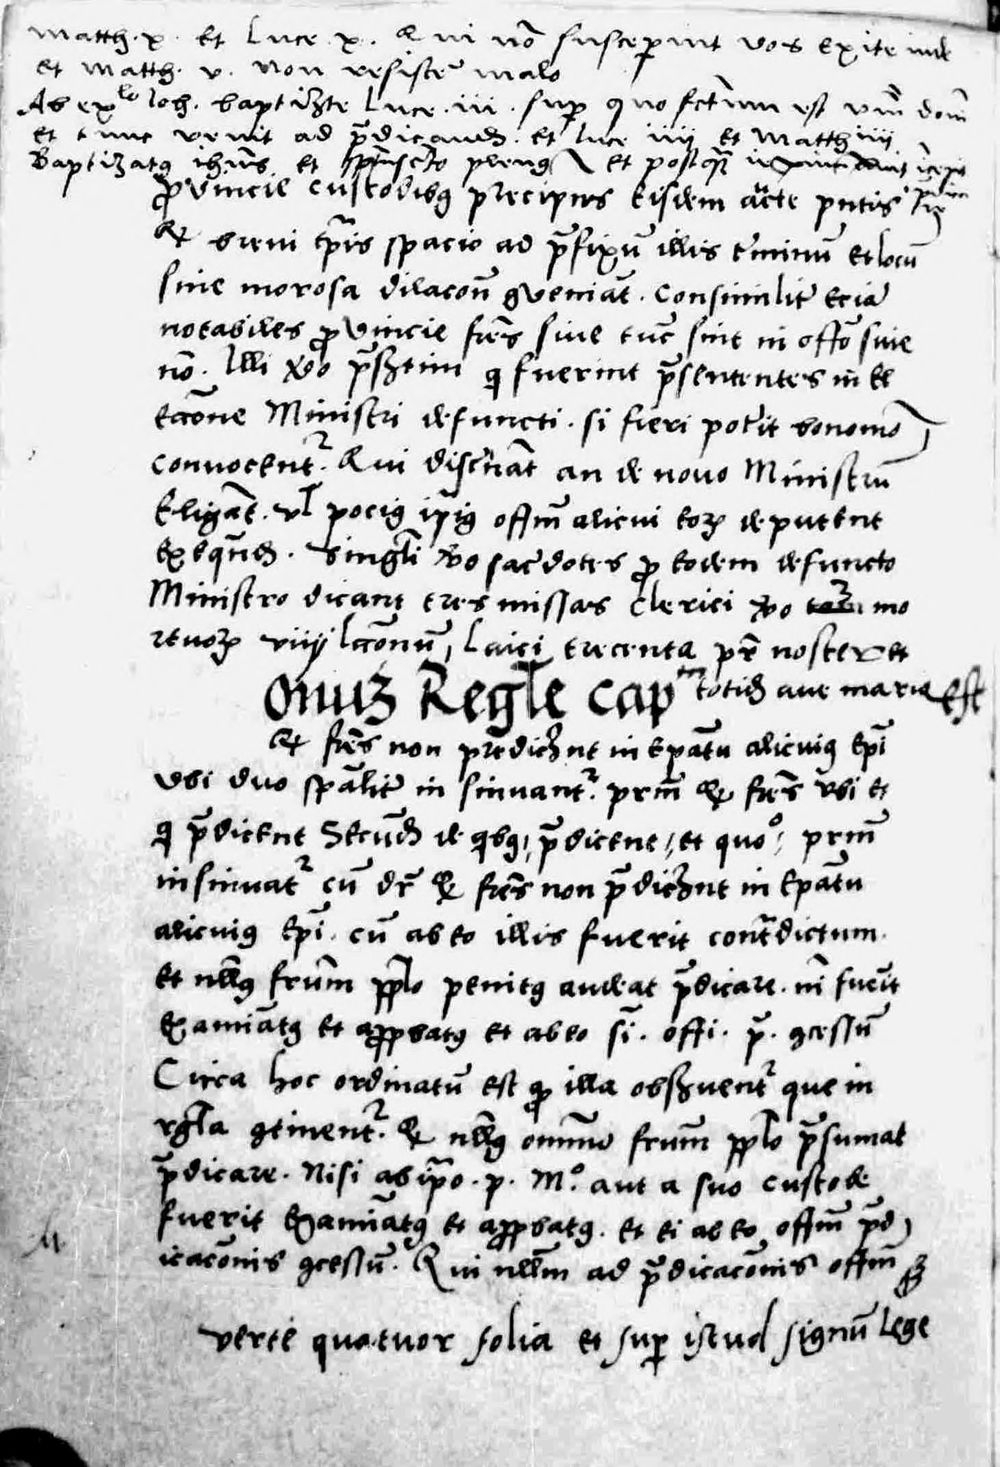 Matth. x. et Luce x. Qui nō susceperint vos exite inde
et Matth. v. Non resistē malo
Ab exlo Ioh. baptizte Luce .iii. sup quo fctm est vm dom
et tunc venit ad pdicand. et luce iiij et Matth iiij
Baptizatq ihus et spusscto plenq et postq
provincie custodibq precipuis eisdem arcte pntis
Qr brevi tpis spacio ad pfixū illis tminū et locū
sine morosa dilacoñ gveniāt. Consimilit eciā
notabiles provincie fres sive tūc sint in offō sive
nō. Illi vo psztim q fuerint psententes in el
eccōne Ministri defuncti. si fieri poterit bono mō
convocentr. Qui discnāt an de novo Ministrū
Eligāt. vl pociq ipiq offm alicui eoz deputent
exequend. Singli vo sacdotes pro eodem defuncto
Ministro dicant tres missas Clerici vo mo
rtuoz viiij lccōnū, Laici trecenta pr noster et
totid ave maria
Onuz Regle Capm Est
Qr fres non predicent in Epatu alicuiq Epi
Ubi duo spalit in sinuantr. prm Qr fres ubi et
q pdicent Secūd de qbq, pdicent, et quo°, prm
insinuatr cū dr Qr fres non pdicent in Epatu
alicuiq Epi. cū ab eo illis fuerit contdictum.
Et nllq frum pplo penitq audeat pdicare. ni fuerit
Examiatq et appbatq et ab eo si. offi. p. gcessū
Circa hoc ordinatū est qp illa obszventr que in
rgla gtinentr. Qr nllq omniū frum pplo psumat
pdicare. Nisi ab ipo. p. M°. aut a suo Custode
fuerit Examiatq et appbatq. et ei ab eo offm pd
icacōnis gcessū. Qui nllm ad pdicacōnis offm
verte quatuor folia et sup istud signū lege